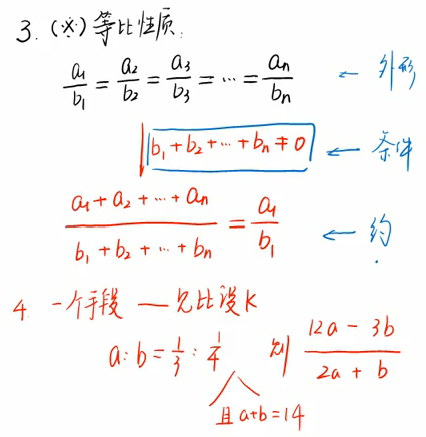 3. (※) 等比性质:
a₁/b₁ = a₂/b₂ = a₃/b₃ = ⋯ = aₙ/bₙ ← 外形
b₁ + b₂ + ⋯ + bₙ ≠ 0 ← 条件
(a₁ + a₂ + ⋯ + aₙ)/(b₁ + b₂ + ⋯ + bₙ) = a₁/b₁ ← 约
4 一个手段 — 见比设k
a:b = 1/3 : 1/4 则 (12a - 3b)/(2a + b)
且 a+b=14